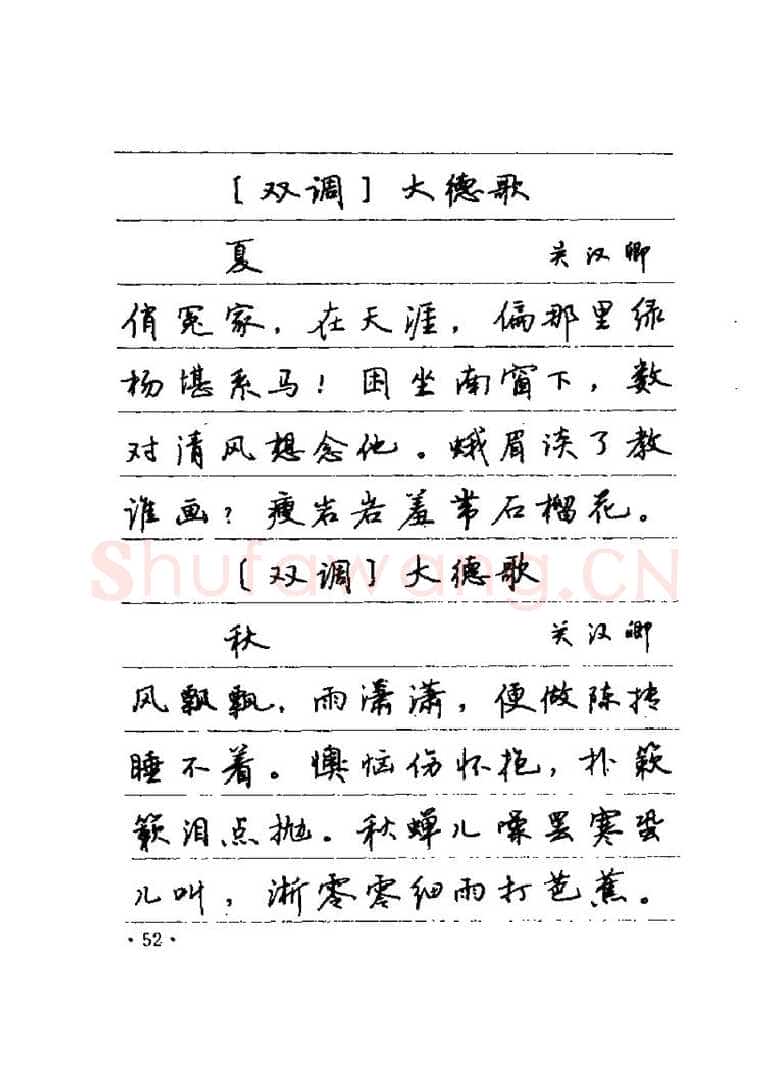 [双调]大德歌
夏 关汉卿
俏冤家，在天涯，偏那里绿
杨堪系马！困坐南窗下，数
对清风想念他。蛾眉淡了教
谁画？瘦岩岩羞带石榴花。
Shufawang.CN
[双调]大德歌
秋 关汉卿
风飘飘，雨潇潇，便做陈抟
睡不着。懊恼伤怀抱，扑簌
簌泪点抛。秋蝉儿噪罢寒蛩
儿叫，淅零零细雨打芭蕉。
·52·